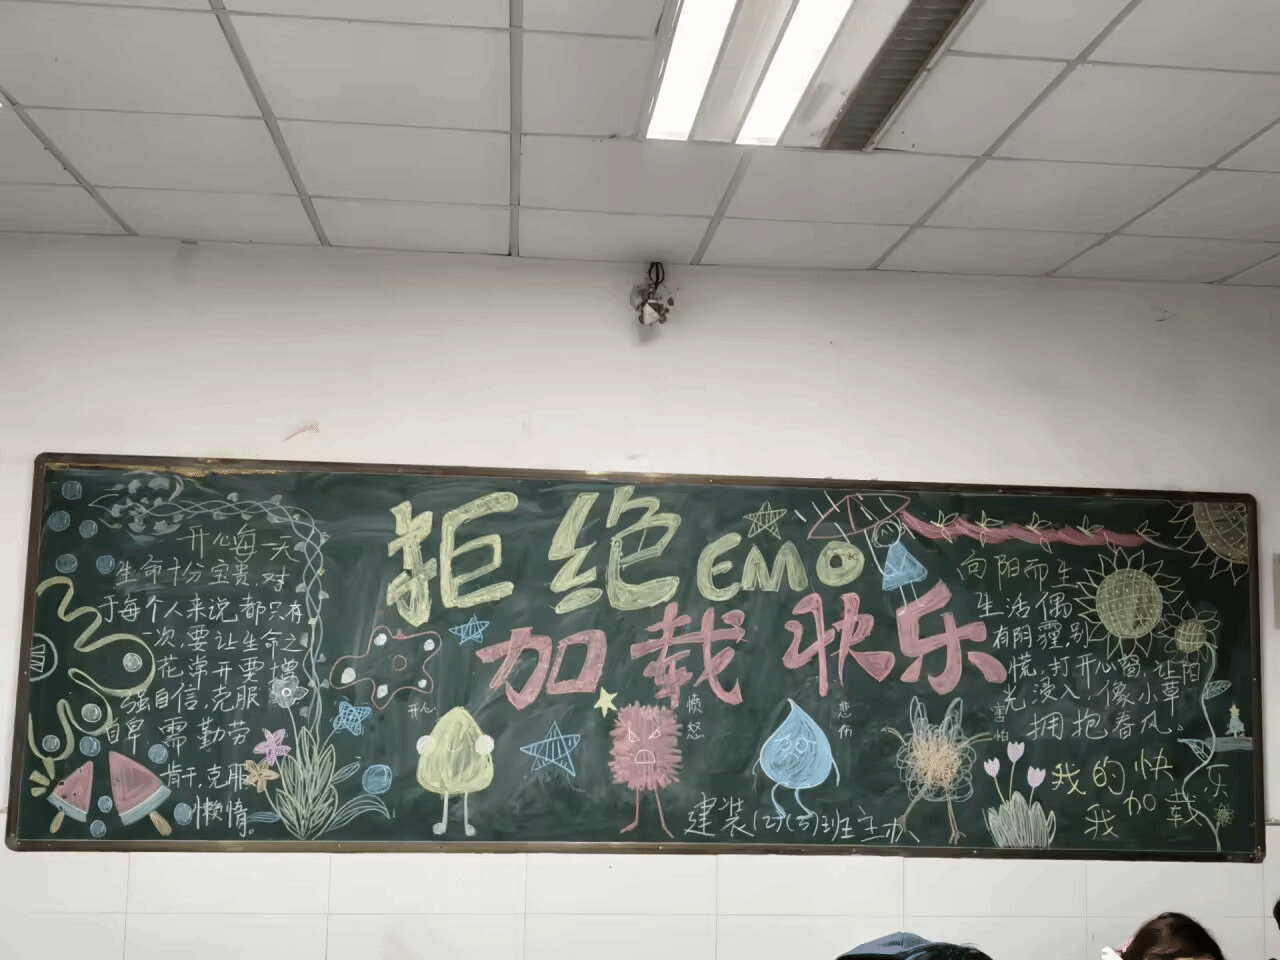 开心每一天
生命十分宝贵,对
于每个人来说都只有
一次,要让生命之
花常开要增
强自信,克服
自卑,需勤劳
肯干,克服
懒惰。
拒绝EMO
加载快乐
开心
愤怒
悲伤
害怕
建装(2)(3)班主办
向阳而生
生活偶
有阴霾,别
慌,打开心窗,让阳
光浸入!像小草
拥抱春风。
我的快乐
我加载